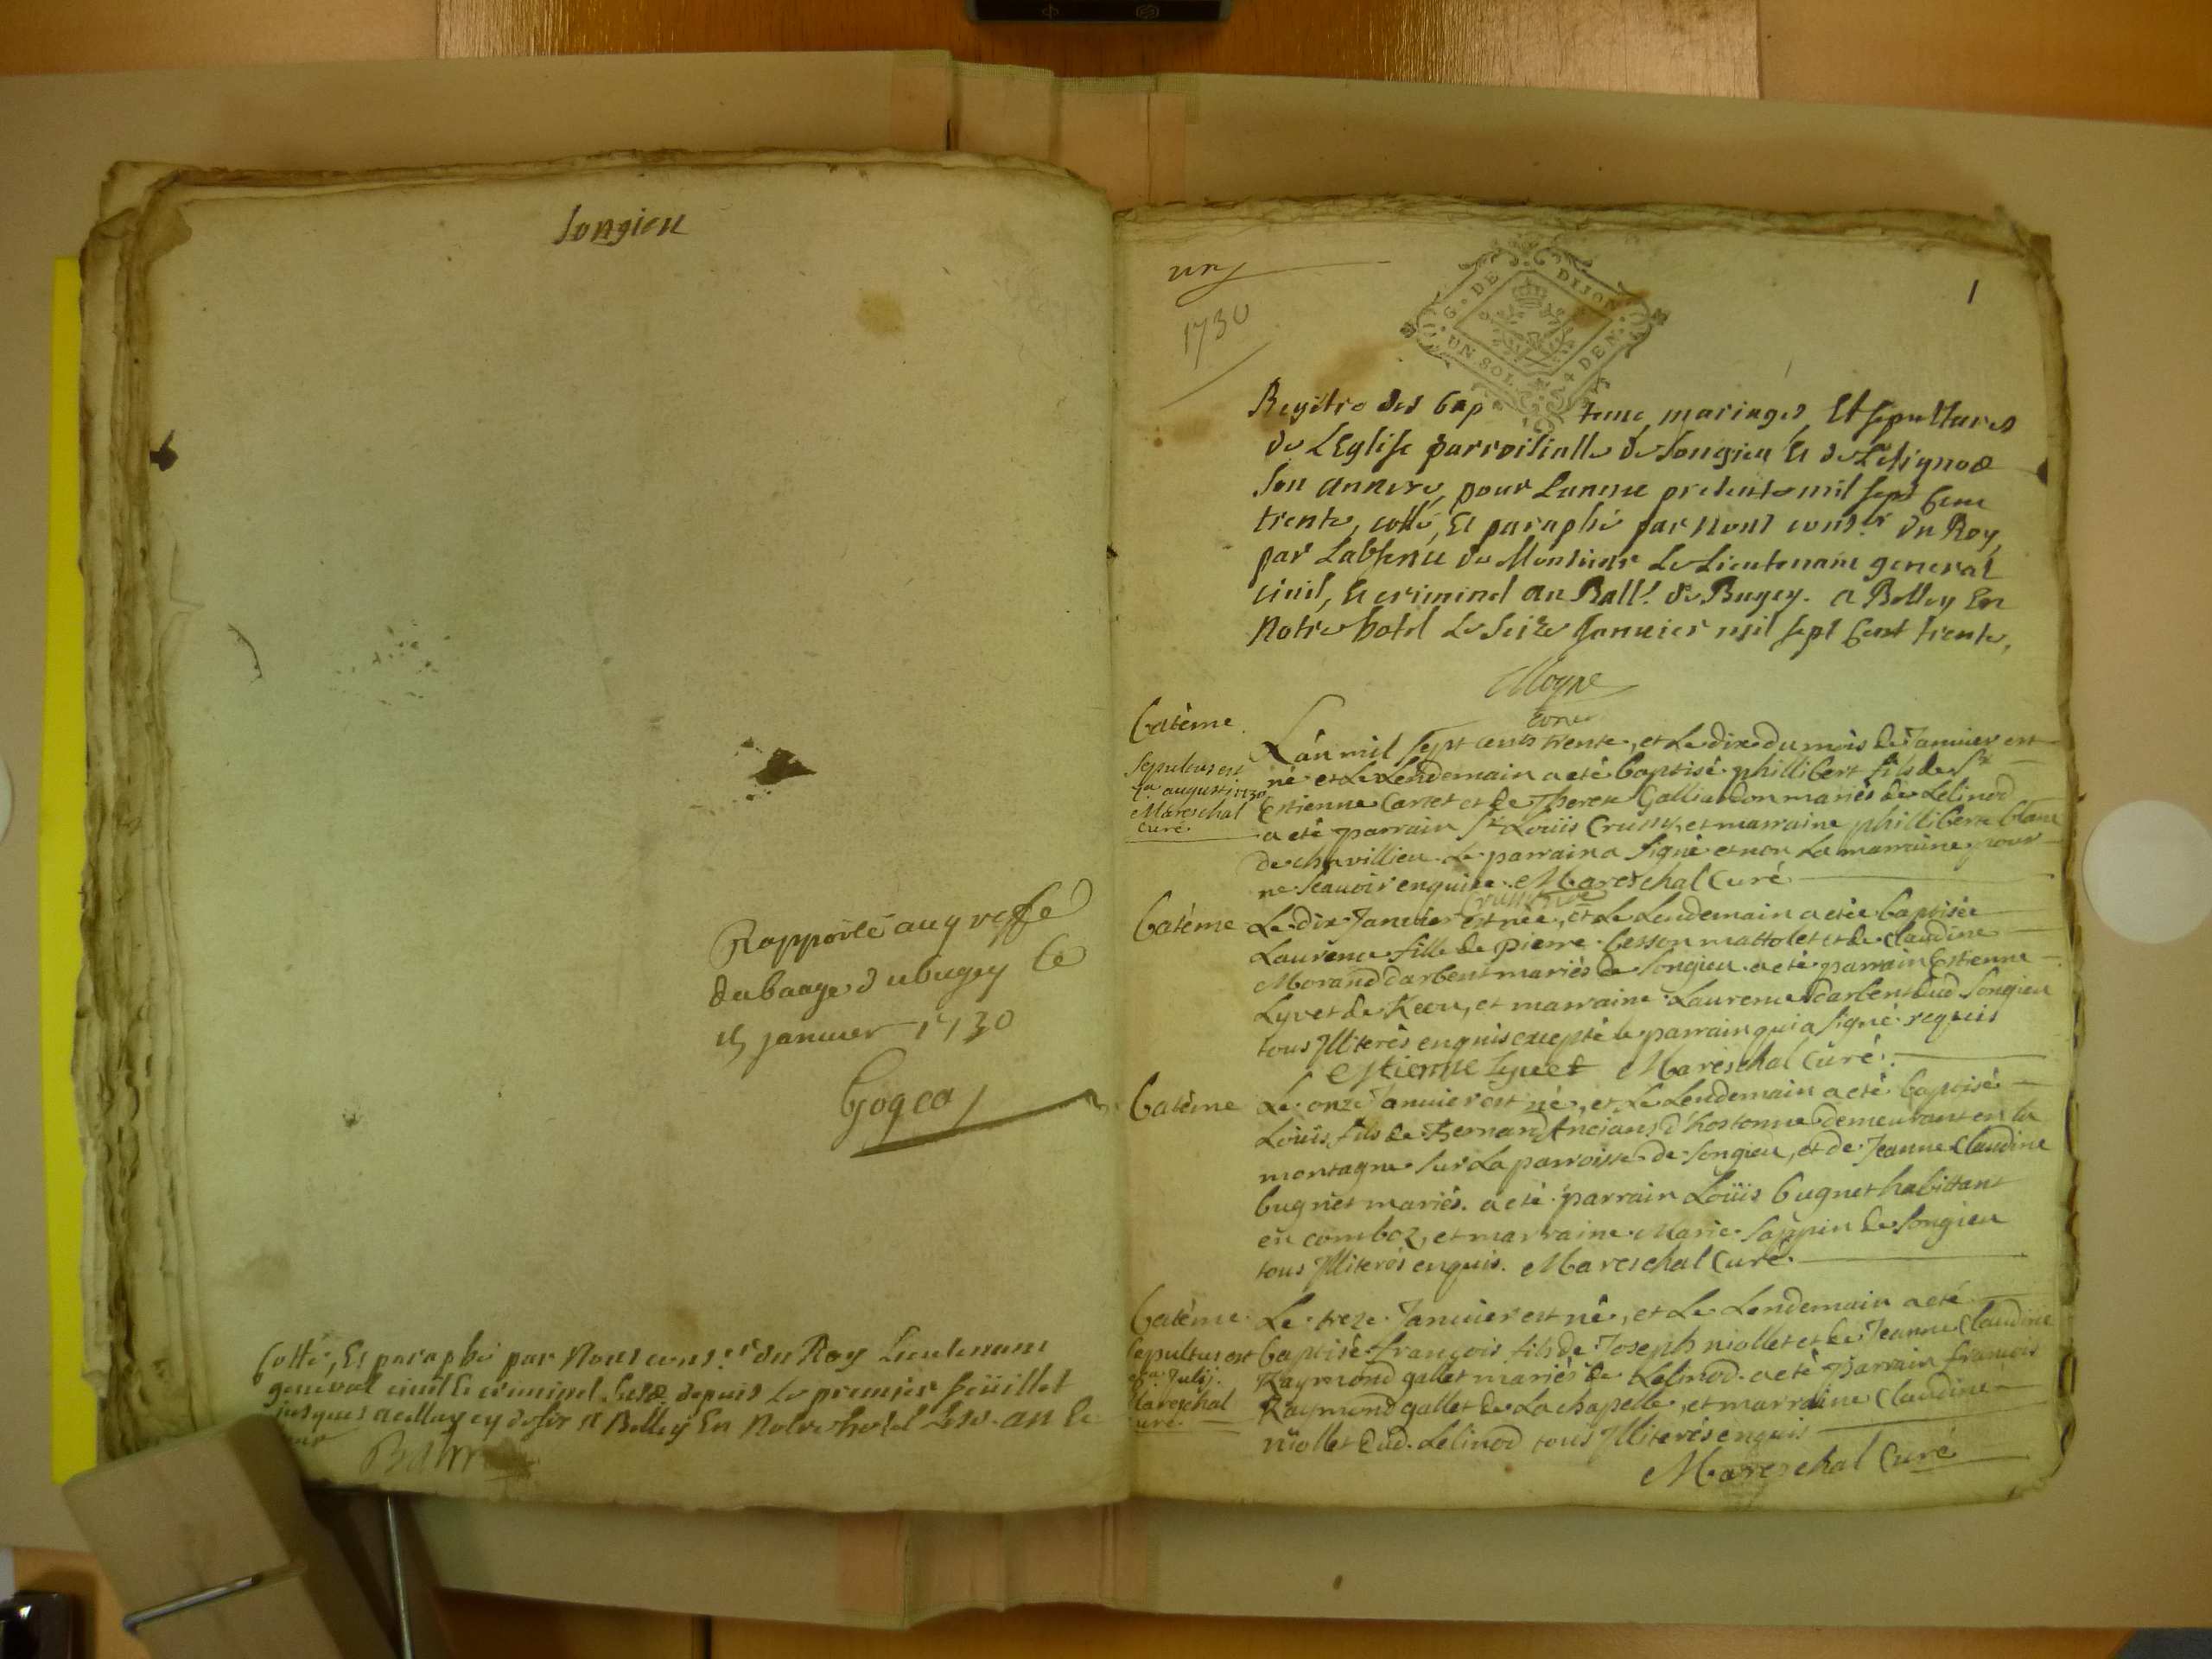 Songieu
Rapporté au greffe
du baage du bugey le
janvier 1730
Gogea
Cotté, Et paraphé par Nous cons.er du Roy Lieutenant
general civil & criminel depuis le premier feüillet
jusques a Belley En Notre hotel
un
1730
1
G. DE DIJON
UN SOL 4 DEN.
Registre des bap teme, mariages, Et sepultures
de L'Eglise parroissialle de Songieu Et de
Son annexe, pour L'annee presente mil sept Cent
trente, cotté, Et paraphé par Nous cons.er du Roy,
par L'absence de Monsieur Le Lieutenant general
civil, Et criminel au Ball.e de Bugey. a Belley En
Notre hotel Le Seize Janvier mil sept Cent trente,
Moyne
Batême
Sepultus est
augusti 1730
Mareschal
Curé
L'an mil sept cents trente, et Le dix du mois de Janvier est
né et Le Lendemain a eté baptisé phillibert fils de Sr
Estienne Carret et de Therese Galliardon mariés de Lelinod
a eté parrain Sr Loüis Crussy, et marraine philliberte blanc
de chavillieu. Le parrain a signé et non La marraine pour
ne scavoir enquise. Mareschal Curé
Batême Le dix Janvier est née, et Le Lendemain a etée baptisée
Laurence fille de pierre besson mattolet et de claudine
Morand darbent mariés de Songieu. a eté parrain Estienne
Lyvet de et marraine Laurence darbent dud Songieu
tous Illiterés enquis excepté le parrain qui a signé requis
Estienne Lyvet Mareschal Curé.
Batême Le onze Janvier est né, et Le Lendemain a eté baptisé
Loüis fils de Bernard Ancians d'hostonne demeurant en la
montagne sur La parroisse de Songieu, et de Jeanne Claudine
bugnet mariés. a eté parrain Loüis bugnet habittant
en comboz, et marraine Marie Sappin de Songieu
tous Illiterés enquis. Mareschal Curé.
Batême
Sepultus est
Julij.
Mareschal
curé.
Le treze Janvier est né, et Le Lendemain a eté
baptisé françois fils de Joseph niollet et de Jeanne Claudine
Raymond gallet mariés de Lelinod. a eté parrain francois
Raymond gallet de La chapelle, et marraine Claudine
niollet dud. Lelinod tous Illiterés enquis
Mareschal Curé